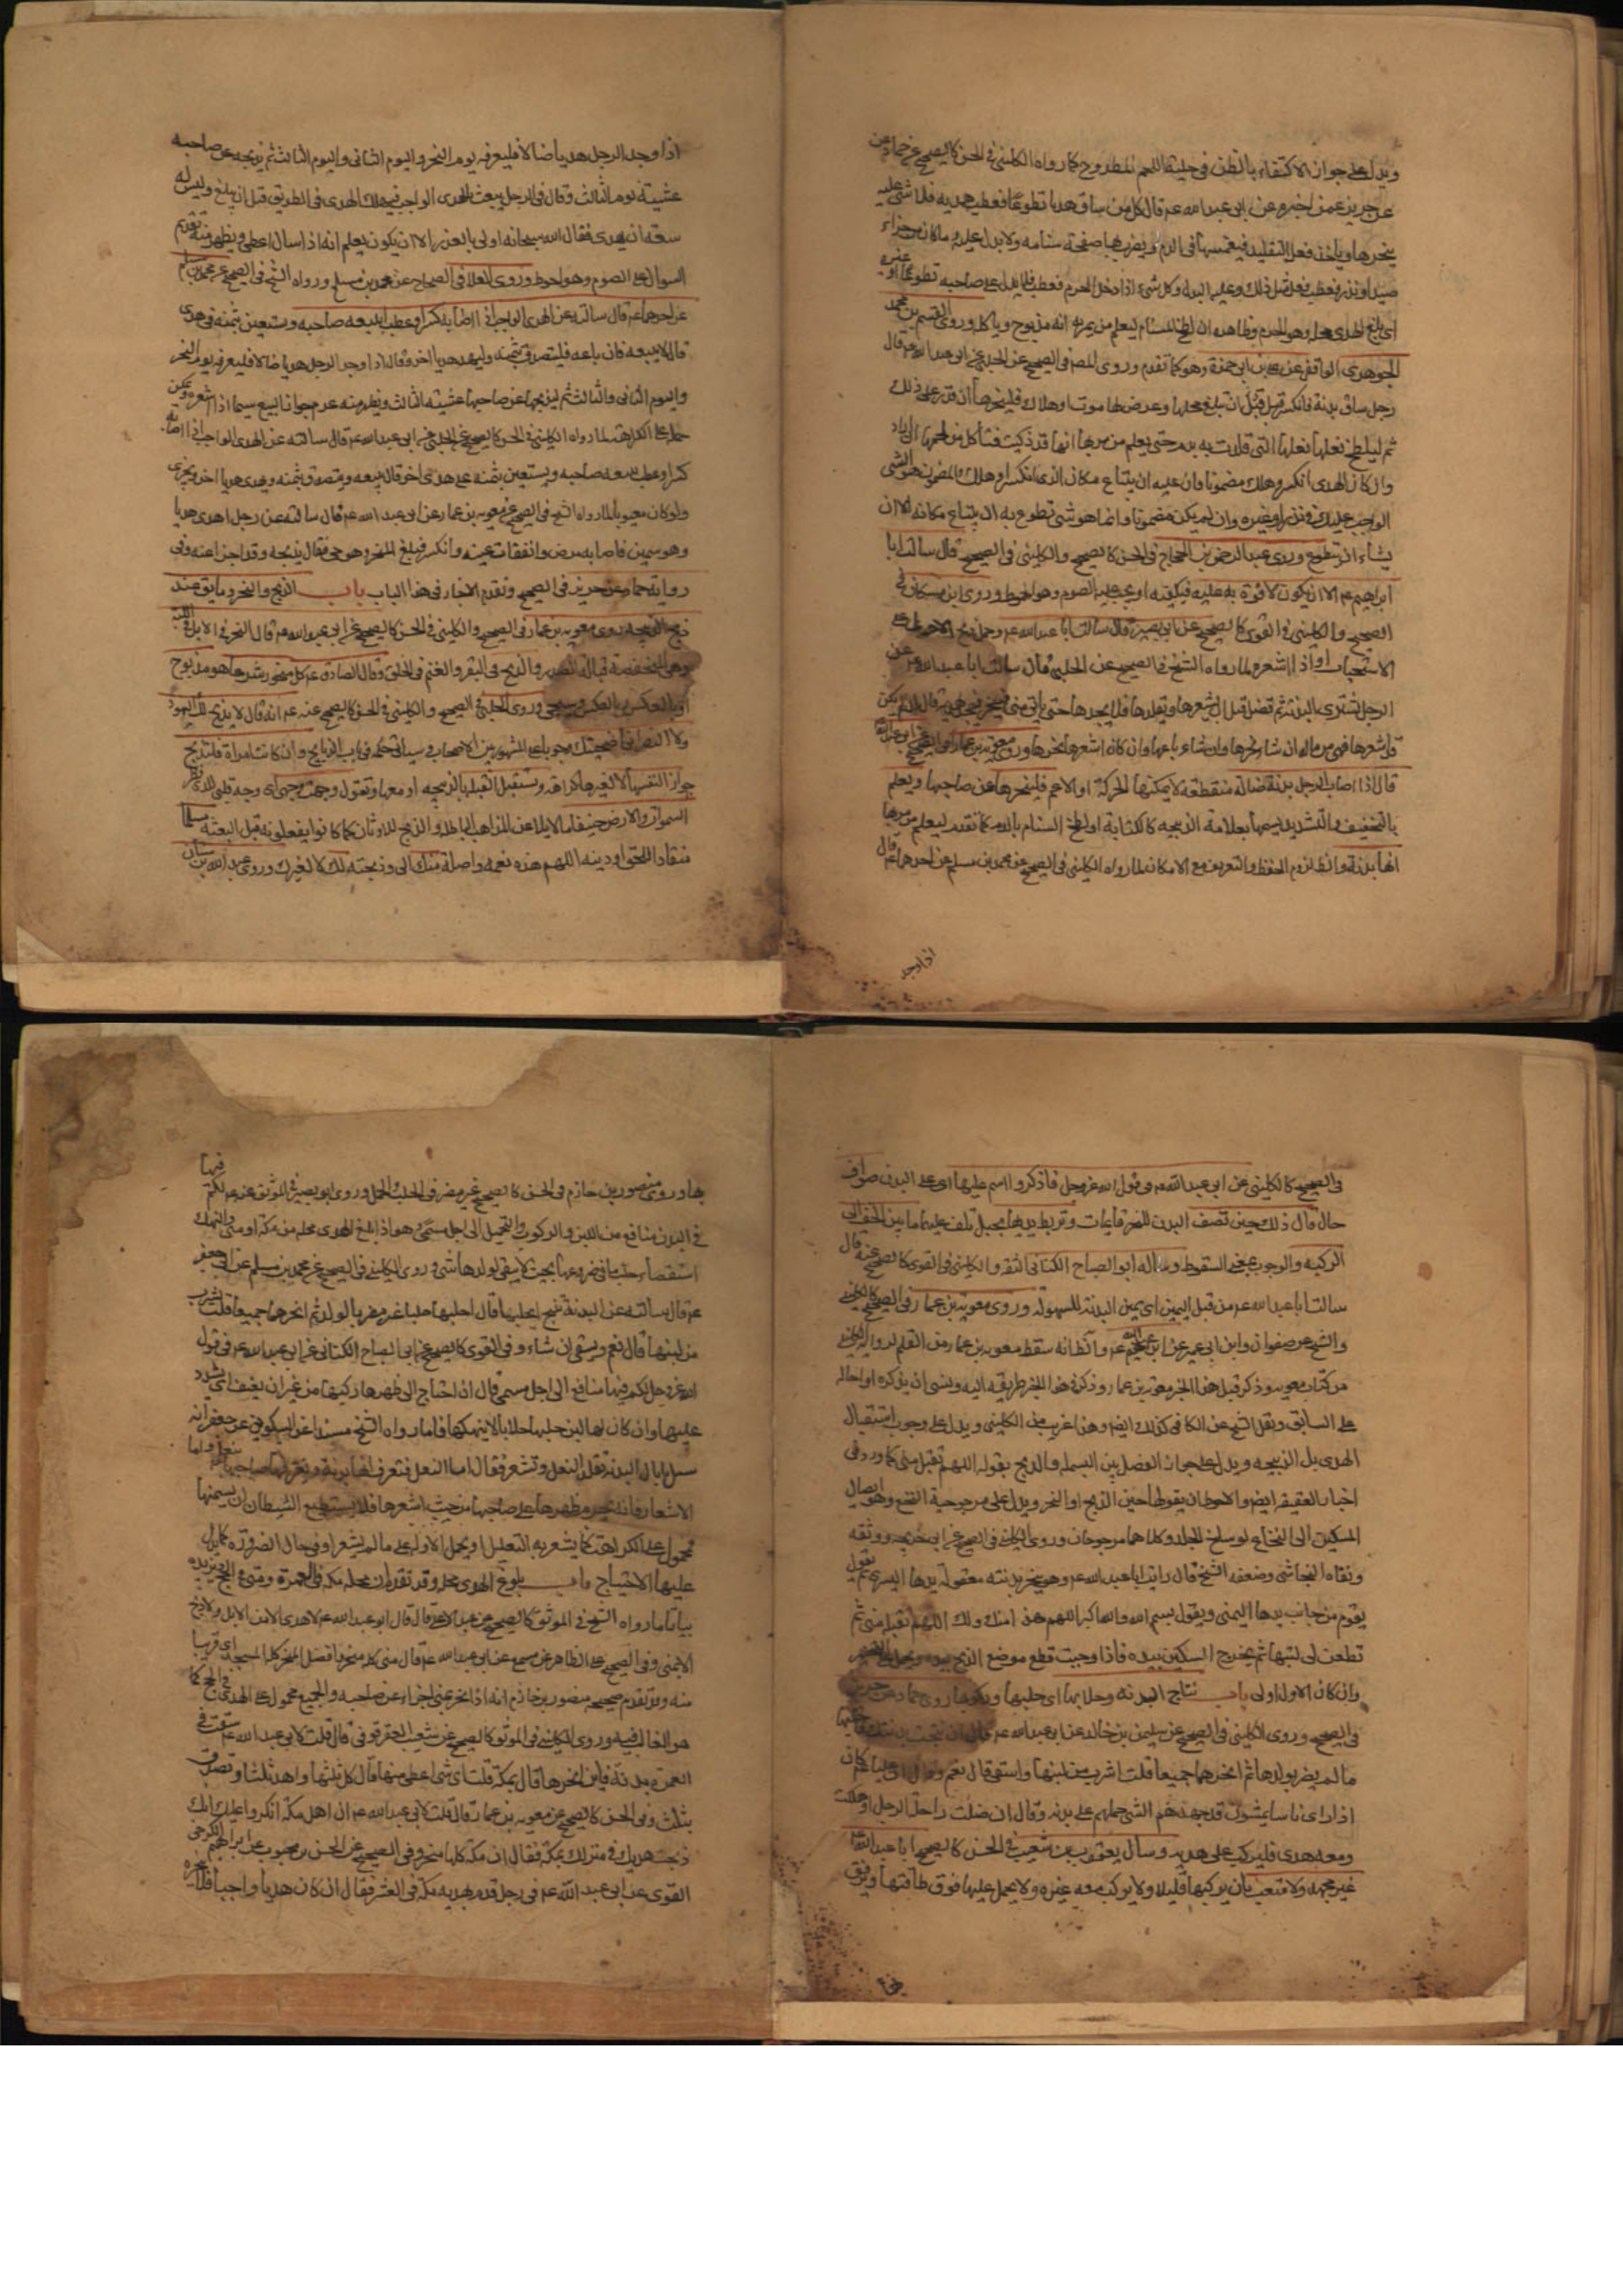 ويدل على جواز الاكتفاء بالظن في حلية اللحم المطروح كما رواه الكليني في الحسن كالصحيح عن حماد عن
حريز عمن اخبره عن ابي عبد الله عم قال كل من ساق هديا تطوعا فعطب هديه فلا شئ عليه
ينحرها وياخذ نعل التقليد فيغمسها في الدم ويضرب بها صفحة سنامه ولا بدل عليه وما كان من جزاء
صيد او نذر فعطب فعل مثل ذلك وعليه البدل وكل شئ اذا دخل الحرم فعطب فلا بدل على صاحبه تطوعا او غيره
اي بلغ الهدي محله وهو الحرم وظاهره ان لطخ السنام ليعلم من يمر به انه مذبوح وياكله وروى القسم بن محمد
الجوهري الواقفي عن علي بن ابي حمزة وهو كما تقدم وروى المصنف في الصحيح عن الحلبي عن ابي عبد الله عم قال
رجل ساق بدنة فانكسرت قبل ان تبلغ محلها او عرض لها موت او هلاك فلينحرها ان قدر على ذلك
ثم ليلطخ نعلها التي قلدت به بدم حتى يعلم من مر بها انها قد ذكيت فيأكل من لحمها ان اراد
وان كان الهدي انكسر وهلك مضمونا فان عليه ان يبتاع مكان الذي انكسر او هلك والمضمون هو الشئ
الواجب عليك في نذر او غيره وان لم يكن مضمونا وانما هو شئ تطوع به فليس عليه ان يبتاع مكانه الا ان
يشاء ان يتطوع وروى عبد الرحمن بن الحجاج في الحسن كالصحيح والكليني في الصحيح قال سالت ابا
ابراهيم عم الا ان يكون لا قوة به عليه فيكفيه او يجب عليه الصوم وهو احوط وروى ابن مسكان في
الصحيح والكليني في القوي كالصحيح عن ابي بصير قال سالت ابا عبد الله عم رجل
الاستحباب او اذا اشعره لما رواه الشيخ في الصحيح عن الحلبي قال سالت ابا عبد الله عم عن
الرجل يشتري البدنة ثم تضل قبل ان يشعرها ويقلدها فلا يجدها حتى ياتي منى فينحر ويجد هديه قال ان لم يكن
قد اشعرها فهي من ماله ان شاء نحرها وان شاء باعها وان كان اشعرها نحرها وروى معوية بن عمار في الصحيح عن ابي عبد الله
قال اذا اصاب الرجل بدنة ضالة منقطعة لا يمكنها الحركة او الاعم فلينحرها عن صاحبها ويعلم
بالتخفيف والتشديد يسمها بعلامة الذبيحه كالكتابة او لطخ السنام بالدم كما تقدم ليعلم من مر بها
انها بدنة والظ لزوم الحفظ والتعريف مع الامكان لما رواه الكليني في الصحيح عن محمد بن مسلم عن احدهما عم قال
اذا وجد
اذا وجد الرجل هديا ضالا فليعرفه يوم النحر واليوم الثاني واليوم الثالث ثم يذبحه عن صاحبه
عشية يوم الثالث وقال في الرجل يبعث بالهدي الواجب فيهلك الهدي في الطريق قبل ان يبلغ وليس له
سعة ان يهدي فقال الله سبحانه اولى بالعذر الا ان يكون يعلم انه اذا سال اعطي ويظهر منه تقديم
السوال على الصوم وهو احوط وروى العلا في الصحاح عن محمد بن مسلم ورواه الشيخ في الصحيح عن محمد بن مسلم
عن احدهما عم قال سالته عن الهدي الواجب اذا اصابه كسر او عطب ايبيعه صاحبه ويستعين بثمنه في هدي
قال لا يبيعه فان باعه فليتصدق بثمنه وليهد هديا اخر وقال اذا وجد الرجل هديا ضالا فليعرفه يوم النحر
واليوم الثاني والثالث ثم ليذبحها عن صاحبها عشية الثالث ويظهر منه عدم جواز البيع سيما اذا اشعره ويمكن
حمله على الكراهة لما رواه الكليني في الحسن كالصحيح عن الحلبي عن ابي عبد الله عم قال سالته عن الهدي الواجب اذا اصابه
كسر او عطب ايبيعه صاحبه ويستعين بثمنه على هدي اخر قال يبيعه ويتصدق بثمنه ويهدي هديا اخر ويجزي
ولو كان معيوبا لما رواه الشيخ في الصحيح عن معوية بن عمار عن ابي عبد الله عم قال سالته عن رجل اهدى هديا
وهو سمين فاصابه مرض وانفقات عينه وانكسر فبلغ المنحر وهو حي فقال يذبحه وقد اجزا عنه وفي
رواية حماد عن حريز في الصحيح وتقدم الاخبار في هذا الباب باب الذبح والنحر وما يق عند
ذبح الذبيحه روى معوية بن عمار في الصحيح والكليني في الحسن كالصحيح عن ابي عبد الله عم قال النحر في الابل في اللبة
وهي المنخفضة قبالة الصدر والذبح في البقر والغنم في الحلق وقال الصادق عم كل منحور مذبوح
او بالعكس وسيجئ وروى الحلبي في الصحيح والكليني في الحسن كالصحيح عنه عم انه قال لا يذبح لك اليهود
ولا النصراني اضحيتك وجوبا على المشهور بين الاصحاب وسياتي حكمه في باب الذبايح وان كانت امراة فلتذبح
جوازا لنفسها لا لغيرها كراهة وتستقبل القبلة بالذبيحه او معها وتقول وجهت وجهي اي وجه قلبي للذي فطر
السموات والارض حنيفا مايلا عن المذاهب الباطلة والذبح للاوثان كما كانوا يفعلونه قبل البعثة مسلما
منقادا للحق او دينه اللهم هذه نعمه واصلة منك الي وذبحته لك لا لغيرك وروى عبد الله بن سنان
في الصحيح كالكليني عن ابي عبد الله عم في قول الله عز وجل فاذكروا اسم الله عليها اي على البدن صواف
حال قال ذلك حين تصف البدن للنحر قايمات وتربط يديها بحبل تلف عليها ما بين الخف الى
الركبه والوجوب بمعنى السقوط وساله ابو الصباح الكناني الثقة والكليني في القوي كالصحيح عنه قال
سالت ابا عبد الله عم من قبل اليمين اي يمين البدنة للسهولة وروى معوية بن عمار في الصحيح كالكليني
والشيخ عن صفوان وابن ابي عمير عن ابي عبد الله عم والظ انه سقط معوية بن عمار من القلم لروايه الكليني
من كتاب معويه وذكر قبل هذا الخبر معوية بن عمار وذكر في هذا الخبر طريقه اليه ونسى ان يذكره او احاله
على السابق ونقل الشيخ عن الكافي كذلك ايضا وهذا غريب من الكليني ويدل على وجوب استقبال
الهدي بل الذبيحه ويدل على جواز الفصل بين البسملة والذبح بقوله اللهم تقبل مني كما ورد في
اخبار العقيقة ايضا والاحوط ان يقولها حين الذبح او النحر ويدل على مرجوحية النخع وهو ايصال
السكين الى النخاع لو سلخ الجلد وكلاهما مرجوحان وروى الكليني في الصحيح عن ابي خديجه ووثقه
وثقاه النجاشي وضعفه الشيخ قال رايت ابا عبد الله عم وهو ينحر بدنته معقولة يدها اليسرى ثم يقول
يقوم من جانب يدها اليمنى ويقول بسم الله والله اكبر اللهم هذا منك ولك اللهم تقبله مني ثم
تطعن في لبتها ثم يخرج السكين بيده فاذا وجبت قطع موضع الذبح بيده
وان كان الاول اولى باب نتاج البدنة وحلابها اي حلبها وركوبها روى حماد عن حريز
في الصحيح وروى الكليني في الصحيح عن سليمن بن خالد عن ابي عبد الله عم قال ان نتجت بدنتك فاحلبها
ما لم يضر بولدها ثم انحرهما جميعا قلت اشرب من لبنها واستقي قال نعم وقال ان عليا عم كان
اذا راى ناسا يمشون قد جهدهم المشي حملهم على بدنه وقال ان ضلت راحلة الرجل او هلكت
ومعه هدي فليركب على هديه وسال يعقوب بن شعيب في الحسن كالصحيح ابا عبد الله عم
غير مجهد ولا متعب بان يركبها قليلا ولا يركب معه غيره ولا يحمل عليها فوق طاقتها ويرفق
بها وروى منصور بن حازم في الحسن كالصحيح غير مضر في الحلب والحمل وروى ابو بصير في الموثق عنه عم لكم فيها
في البدن منافع من اللبن والركوب والتحميل الى اجل مسمى وهو اذا بلغ الهدي محله من مكة او منى
استقصاء حلب ما في ضروعها بحيث لا يبقى لولدها شئ وروى الكليني في الصحيح عن محمد بن مسلم عن ابي جعفر
عم قال سالته عن البدنة تنتج ايحلبها قال احلبها حلبا غير مضر بالولد ثم انحرهما جميعا قلت يشرب
من لبنها قال نعم ويسقي ان شاء وفي القوي كالصحيح عن ابي الصباح الكناني عن ابي عبد الله عم في قول
الله عز وجل لكم فيها منافع الى اجل مسمى قال ان احتاج الى ظهرها ركبها من غير ان يعنف اي يشدد
عليها وان كان لها لبن حلبها حلابا لا ينهكها واما ما رواه الشيخ مسندا عن السكوني عن جعفر انه
سئل ما بال البدنة تقلد النعل وتشعر فقال اما النعل فتعرف انها بدنة ويعرفها صاحبها بنعله واما
الاشعار فانه يحرم ظهرها على صاحبها من حيث اشعرها فلا يستطيع الشيطان ان يتسنمها
محمول على الكراهة كما يشعر به التعليل او يحمل الاول على ما لم يشعر او في حال الضرورة كما يدل
عليها الاحتياج باب بلوغ الهدي محله وقد تقدم ان محله مكه في العمرة ومنى في الحج ويزيده
بيانا ما رواه الشيخ في الموثق كالصحيح عن عبد الاعلى قال قال ابو عبد الله عم لا هدي الا من الابل ولا ذبح
الا بمنى وفي الصحيح على الظاهر عن مسمع عن ابي عبد الله عم قال منى كله منحر وافضل المنحر كله المسجد اي قريبا
منه وقد تقدم صحيحه منصور بن حازم انه اذا نحر بمنى اجزاء عن صاحبه والجميع محمول على الهدي في الحج كما
هو الغالب فيه وروى الكليني في الموثق كالصحيح عن شعيب العقرقوفي قال قلت لابي عبد الله عم سقت في
العمرة بدنة فاين انحرها قال بمكة قلت اي شئ اعطي منها قال كل ثلثها واهد ثلثا وتصدق
بثلث وفي الحسن كالصحيح عن معوية بن عمار قال قلت لابي عبد الله عم ان اهل مكة انكروا عليك انك
ذبحت هديك في منزلك بمكة فقال ان مكة كلها منحر وفي الصحيح عن الحسن بن محبوب عن ابراهيم الكرخي
القوي عن ابي عبد الله عم في رجل قدم بهديه مكة في العشر فقال ان كان هديا واجبا فلا ينحره